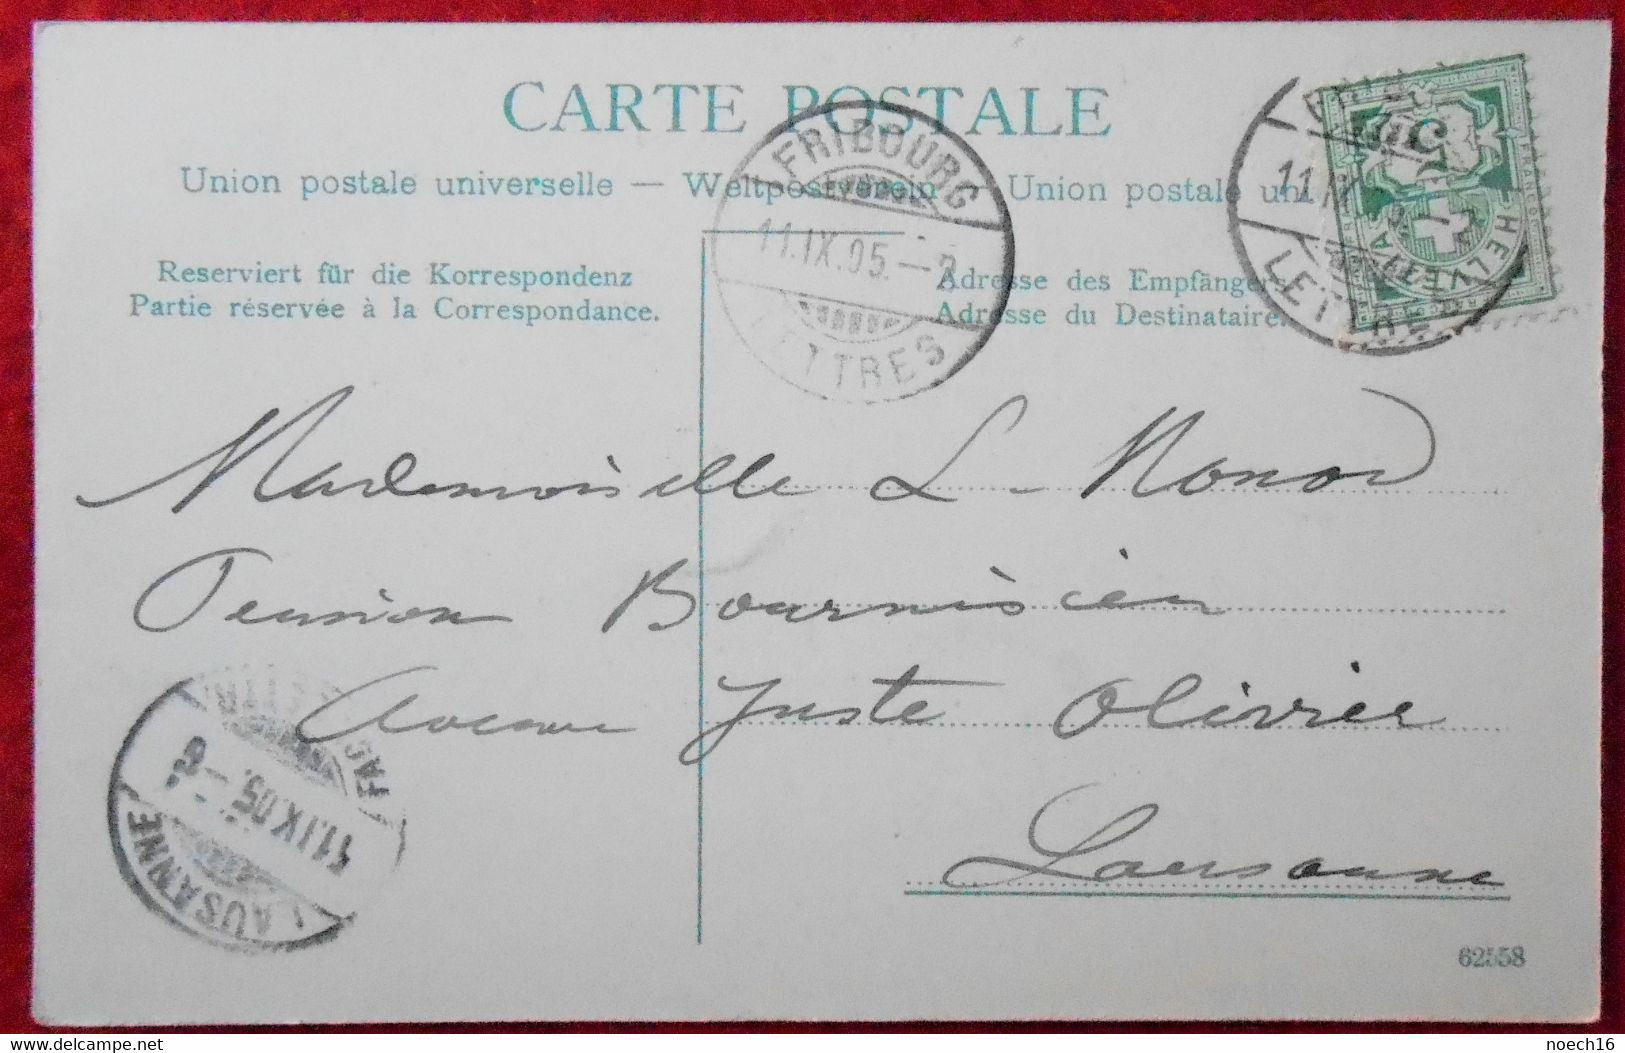 CARTE POSTALE
Union postale universelle — Weltpostverein — Union postale uni
Reserviert für die Korrespondenz
Partie réservée à la Correspondance.
Adresse des Empfängers
Adresse du Destinataire.
FRIBOURG
11.IX.05.
LETTRES
11.IX
LETTRES
5
HELVETIA
FRANCO
Mademoiselle L. Monod
Pension
Avenue Juste Olivier
Lausanne
LAUSANNE
11.IX.05.-6
62558
delcampe.net
noech16